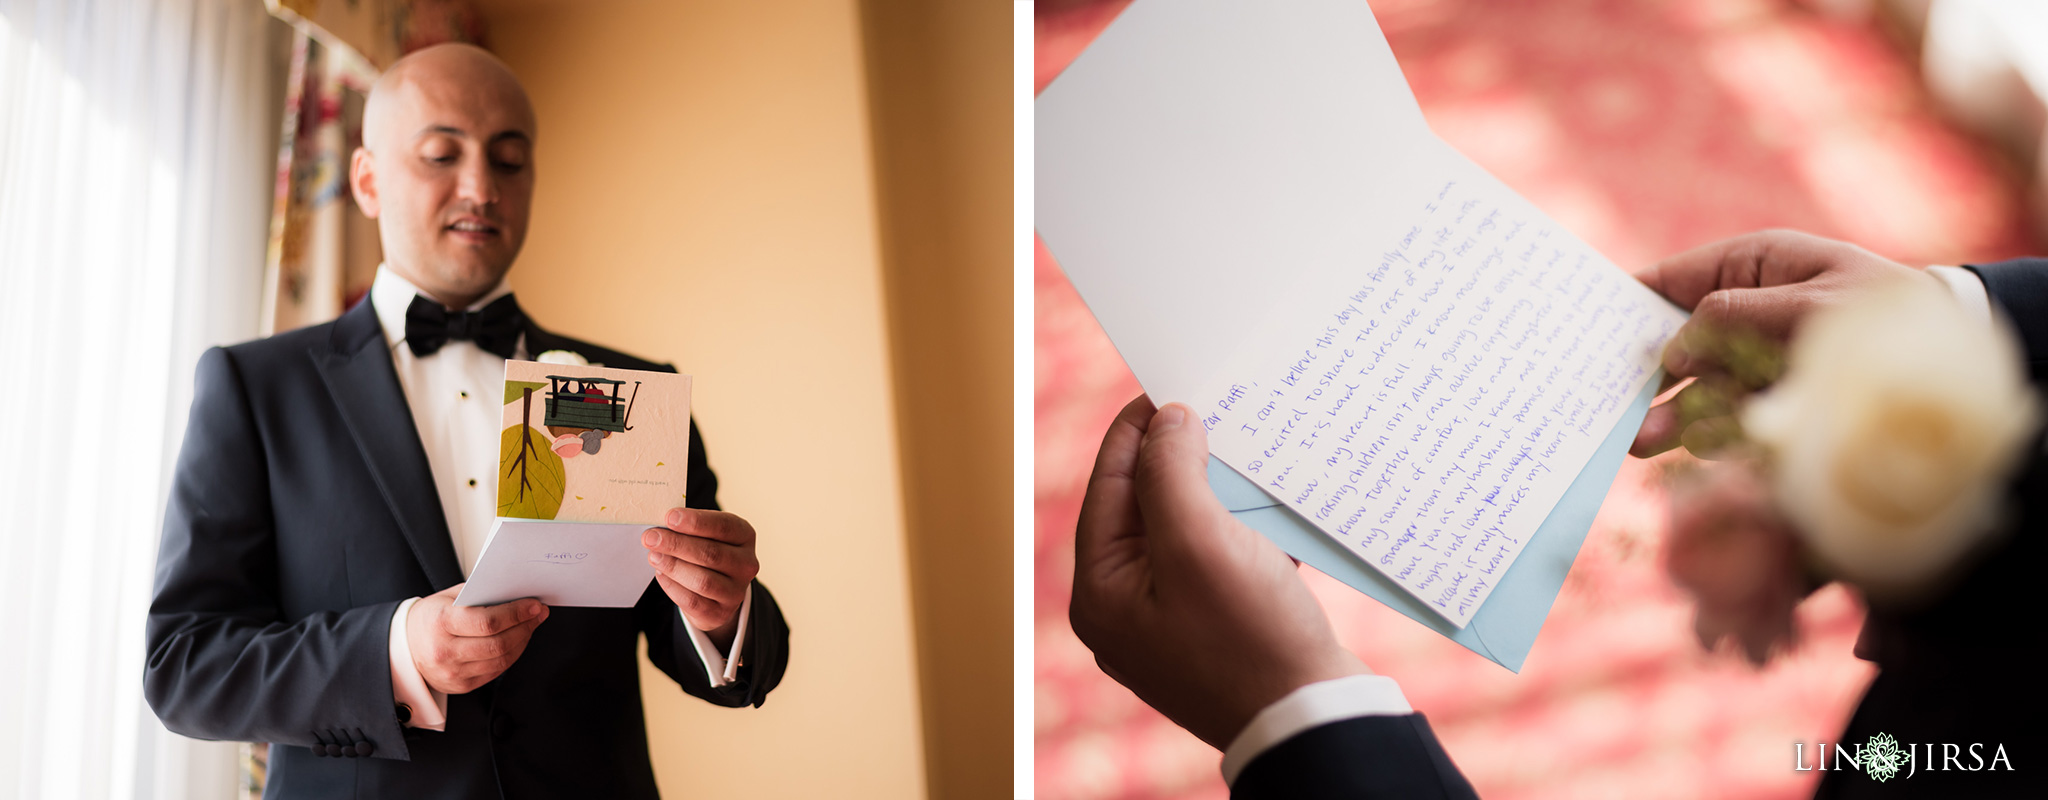 I want to grow old with you
Raffi ♡
Dear Raffi,
I can't believe this day has finally come. I am
so excited to share the rest of my life with
you. It's hard to describe how I feel right
now, my heart is full. I know marriage and
raising children isn't always going to be easy, but I
know together we can achieve anything. You are
my source of comfort, love and laughter. You are
stronger than any man I know and I am so proud to
have you as my husband. Promise me that during our
highs and lows you always have your smile on your face
because it truly makes my heart smile. I love you with
all my heart!
LIN & JIRSA